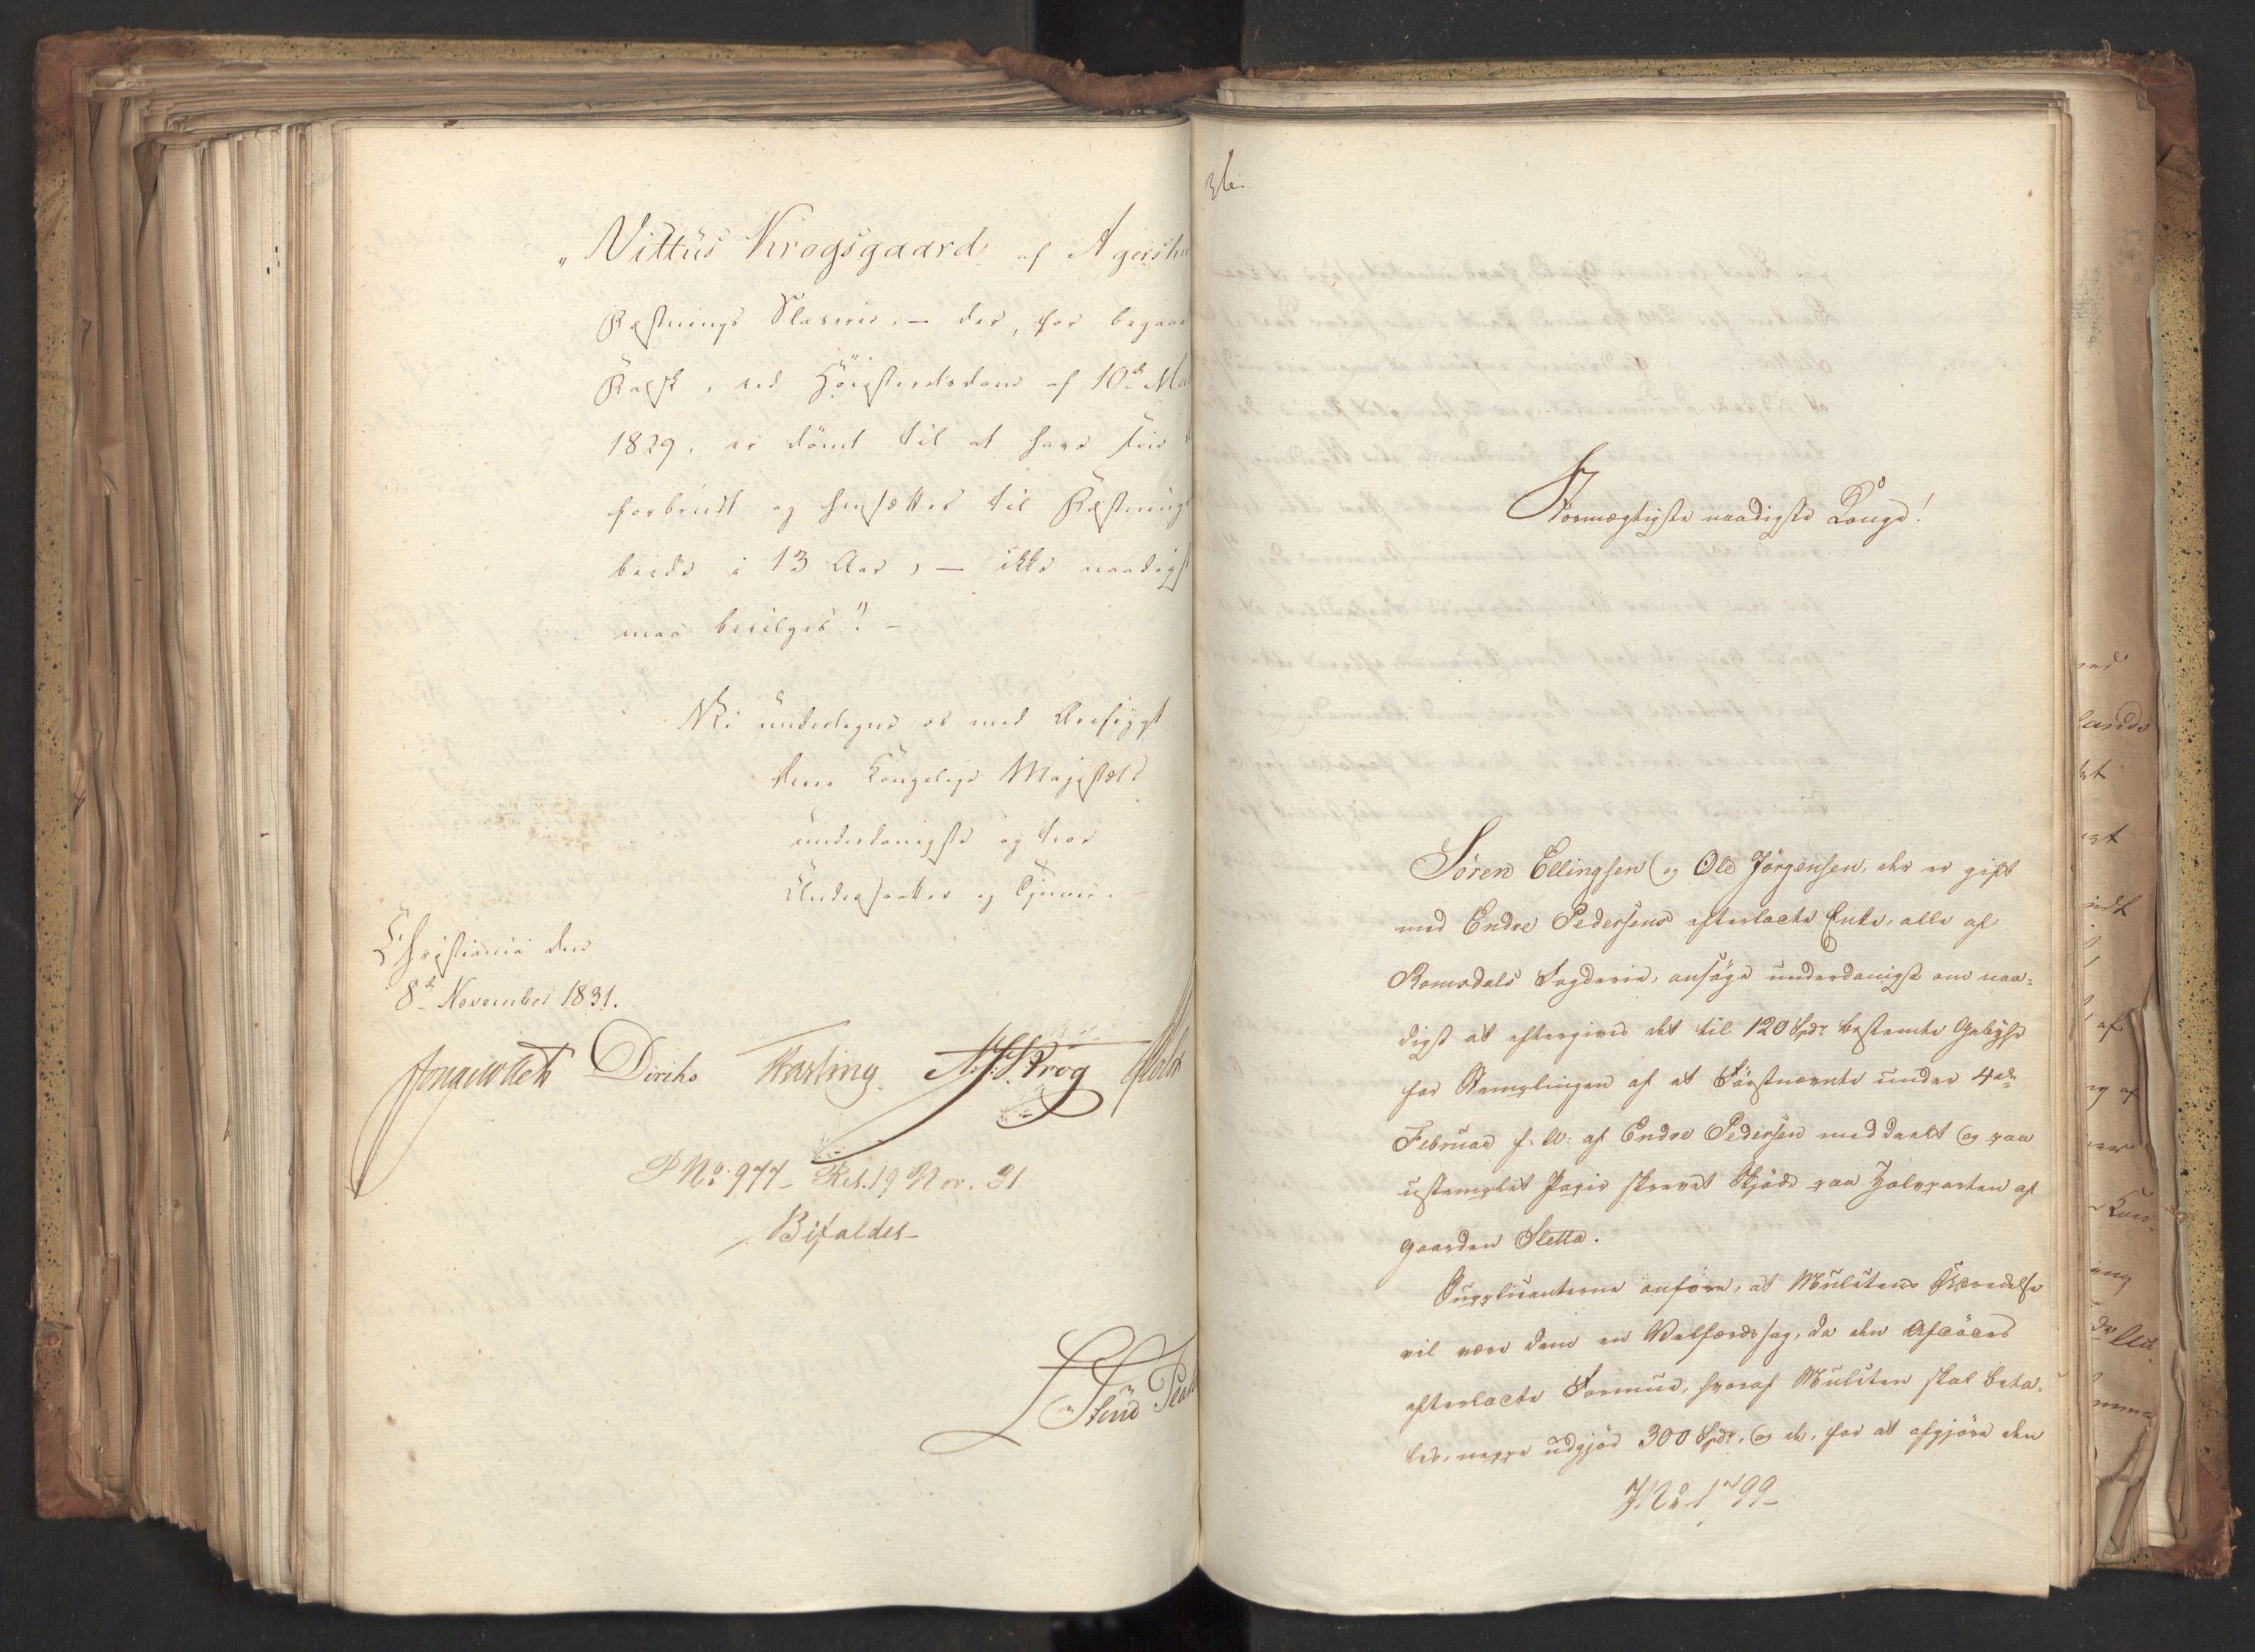 "Vittus Krogsgaard af Agersh
Fæstnings Slaverie, — der, for begaaet
Falsk, ved Höiesteretsdom af 10de Ma
1829, er dömt til at have sin
forbrudt og hensættes til Fæstnings
beide i 13 Aar, — ikke naadigst
maa bevilges". —
Vi undertegne os med Ærefrygt
Deres Kongelige Majestæts
underdanigste og troe
Undersaatter og Tjenere.
Christiania den
8de November 1831.
Diriks
N. Krog
P No. 977 – Res. 19 Nov. 31
Bifaldes –
36
Stormægtigste naadigste Konge!
Sören Ellingsen og Ole Jörgensen, der er gift
med Endre Pedersens efterladte Enke, alle af
Romsdals Fogderie, ansöge underdanigst om naa-
digst at eftergives det til 120 Spdr bestemte Gebyhr
for Stemplingen af et Förstnævnte under 4de
Februar f. A. af Endre Pedersen meddeelt og paa
ustemplet Papir skrevet Skjöde paa Halvparten af
Gaarden Sletta.
Supplicanterne anföre, at Mulctens Erlæggelse
vil være dem en Velfærdssag, da den Afdödes
efterladte Formue, hvoraf Mulcten skal beta-
les, neppe udgjör 300 Spdr, og de, for at afgjöre den
J No 1799 –